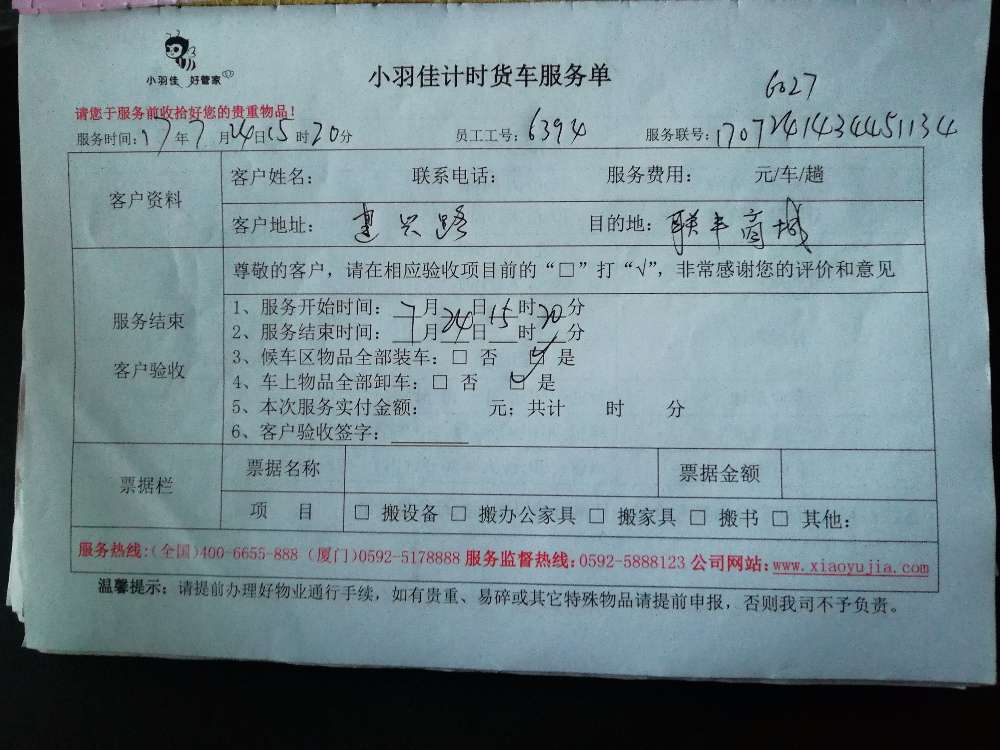 小羽佳 好管家
小羽佳计时货车服务单
6027
请您于服务前收拾好您的贵重物品!
服务时间:17年7月24日15时20分 员工工号:6394 服务联号:1707241434451134
客户资料
客户姓名: 联系电话: 服务费用: 元/车/趟
客户地址: 建兴路 目的地: 联丰商城
服务结束
客户验收
尊敬的客户，请在相应验收项目前的“□”打“√”，非常感谢您的评价和意见
1、服务开始时间: 7月24日15时20分
2、服务结束时间: 月 日 时 分
3、候车区物品全部装车: □ 否 ☑ 是
4、车上物品全部卸车: □ 否 ☑ 是
5、本次服务实付金额: 元; 共计 时 分
6、客户验收签字:
票据栏
票据名称 票据金额
项 目 □ 搬设备 □ 搬办公家具 □ 搬家具 □ 搬书 □ 其他:
服务热线:(全国)400-6655-888 (厦门)0592-5178888 服务监督热线:0592-5888123 公司网站:www.xiaoyujia.com
温馨提示: 请提前办理好物业通行手续，如有贵重、易碎或其它特殊物品请提前申报，否则我司不予负责。